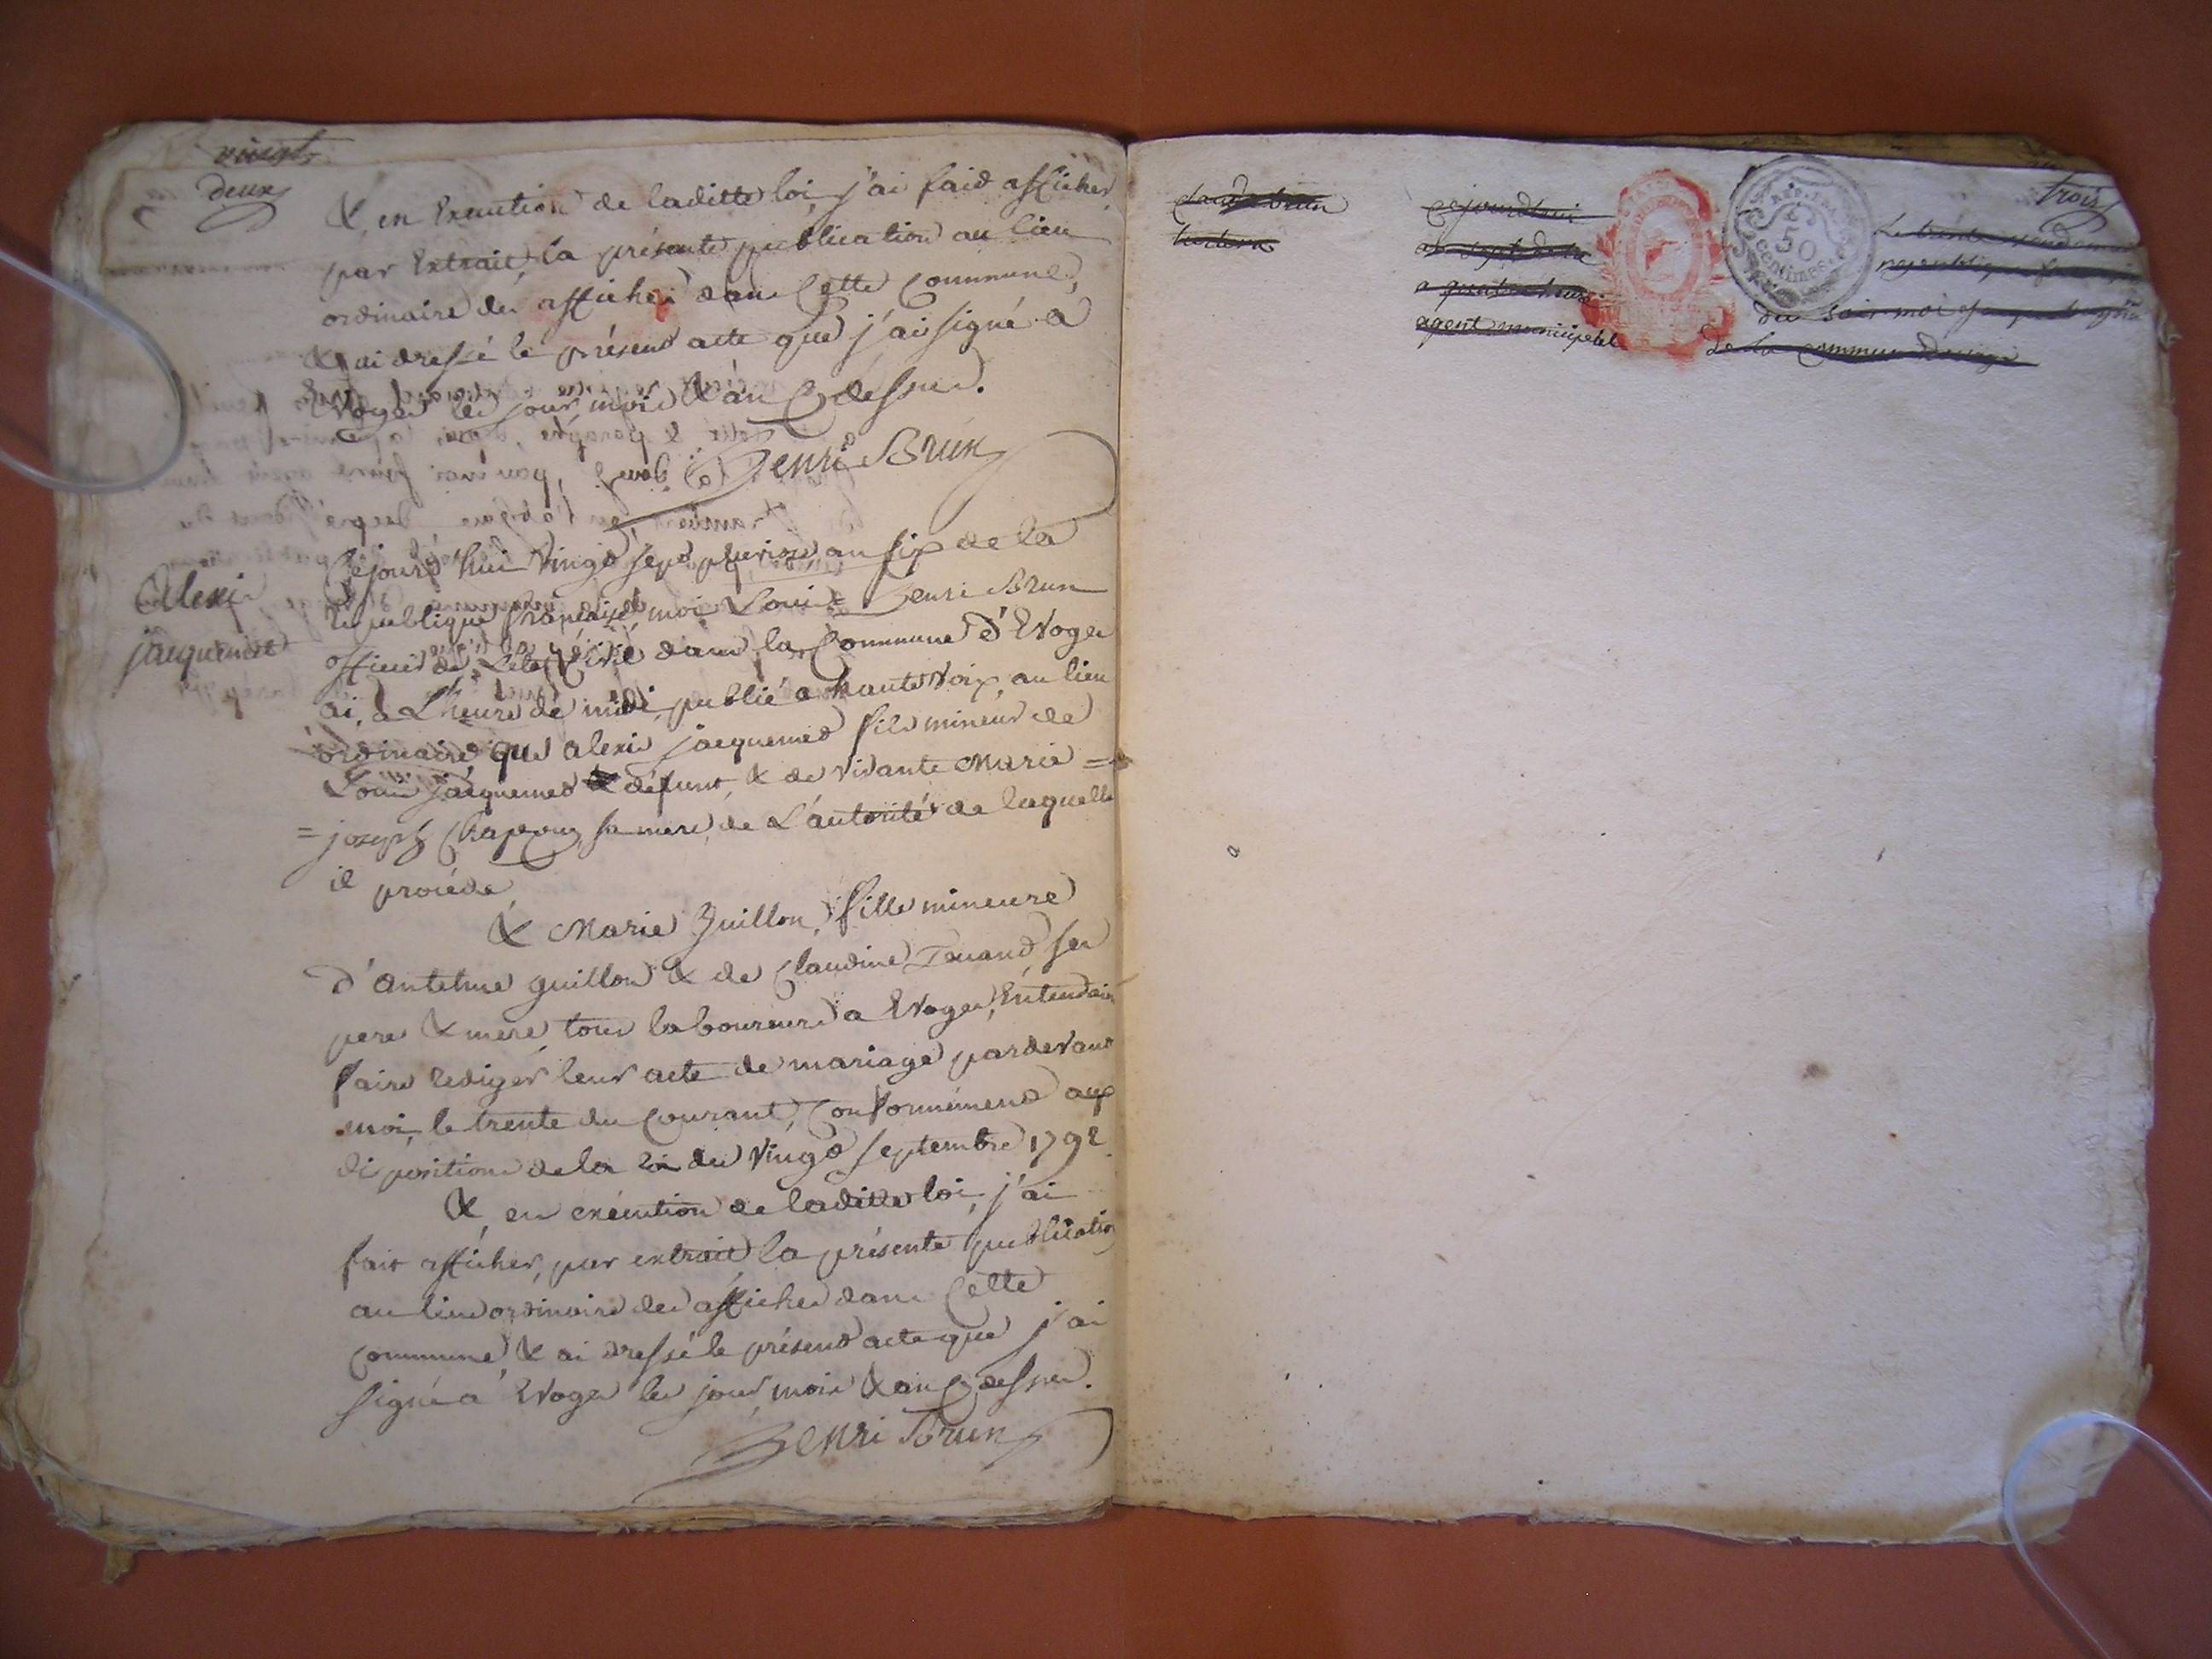 vingt
deux
& en Execution de laditte loi, j'ai fait afficher,
par Extrait, la présente publication au lieu
ordinaire des affiches dans Cette Commune,
& ai dressé le présent acte que j'ai signé à
Evoges les jour, mois & an Cy dessus.
Henri Brun
Alexis
jacquemet
Cejourd'hui vingt sept pluviose an six de la
Republique française, moi Louis = Henri Brun
officier de L'état Civil dans la Commune d'Evoges
ai, à L'heure de midi, publié a haute voix, au lieu
ordinaire que alexis jacquemet fils mineur de
Louis jacquemet défunt, & de vivante Marie =
= joseph Chapoux sa mere, de L'autorité de laquelle
il procéde
& Marie Guillon, fille mineure
d'antelme guillon & de Claudine Tenand ses
pere & mere, tous laboureurs a Evoges, Entendaient
faire rediger leur acte de mariage pardevant
moi, le trente du Courant, Conformément aux
dispositions de la loi du vingt septembre 1792.
&, en exécution de laditte loi, j'ai
fait afficher, par extrait la présente publication
au lieu ordinaire des affiches dans Cette
Commune, & ai dressé le présent acte que j'ai
signé a Evoges les jour, mois & an Cy dessus.
Henri Brun
trois
cejourdhui
a quatre heures du soir moi
agent municipal de la commune
50
centimes